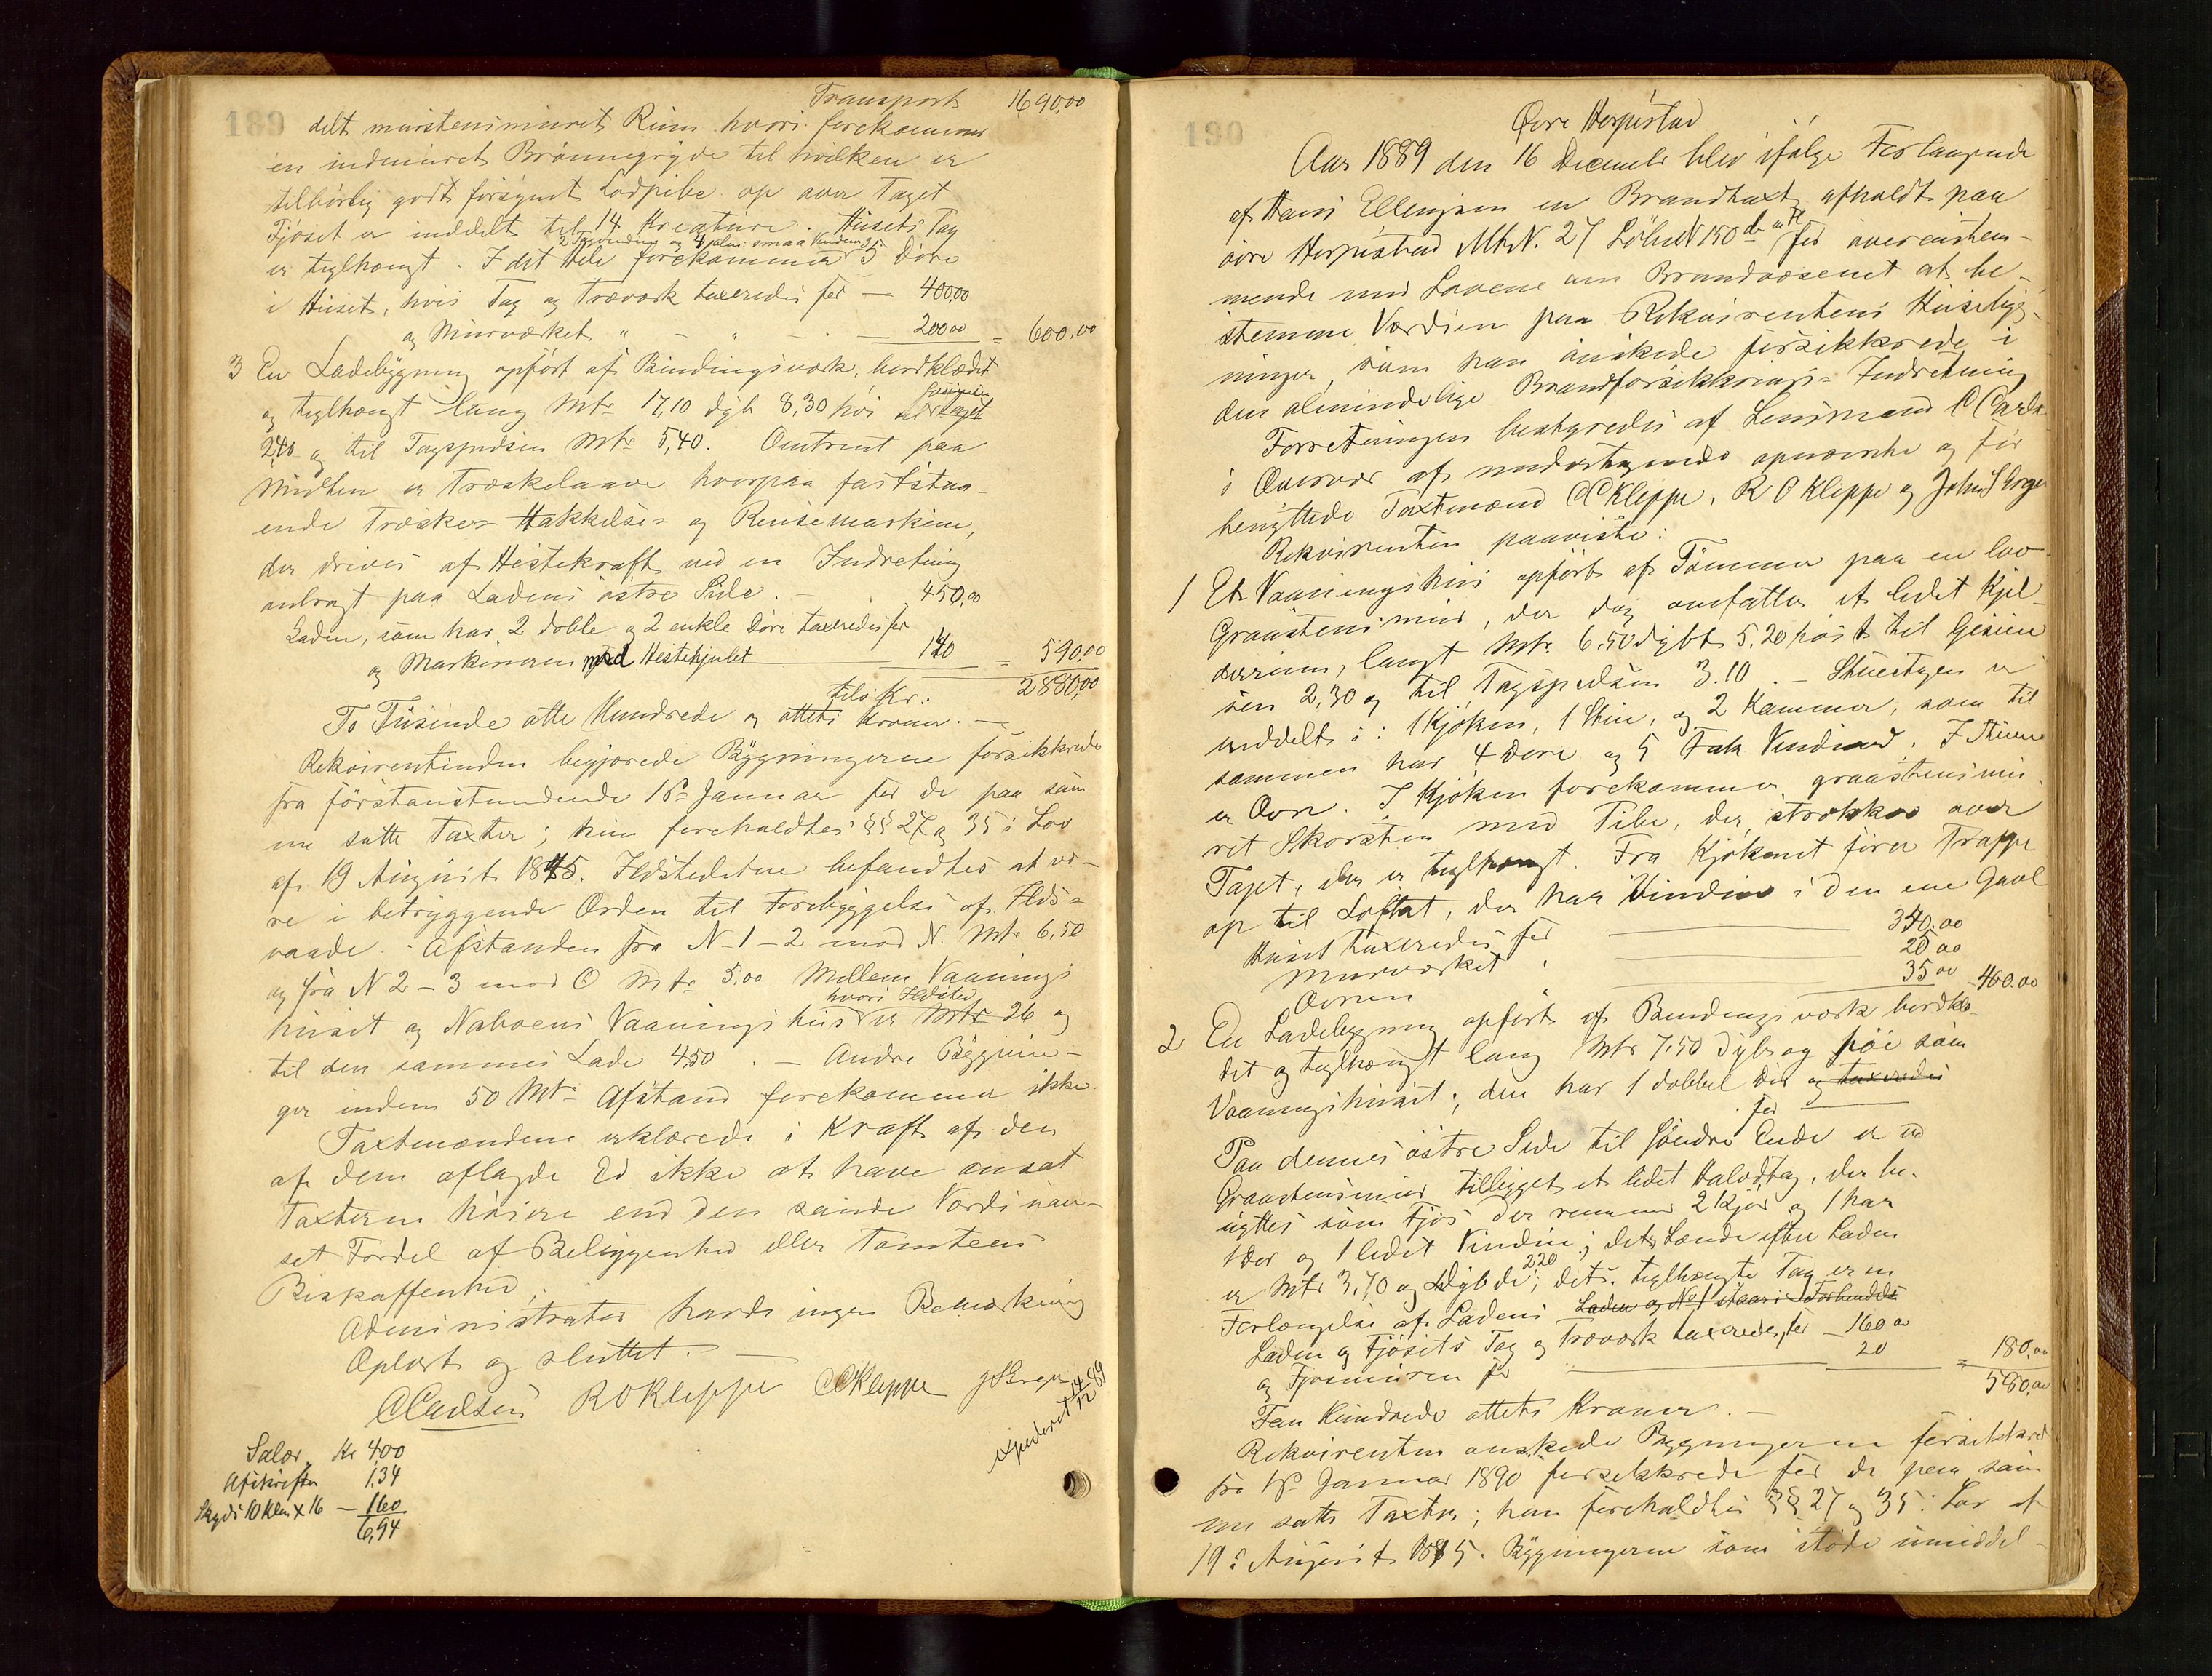 189
Transport 1690,00
delt murstensmuret Rum hvori forekommer
en indmuret Bröinnegryde til hvilken er
tilbörlig godt forsynet Lodpibe op over Taget
Fjöset er inddelt til 14 Kreature. Husets Tag
2 Fagvinduer og 4 smaa Vinduer
er teglhængt. I det Hele forekommer 5 Döre
i Huset, hvis Tag og Træværk taxeredes for — 400,00
og Murværket " — " — 200,00 = 600,00
3 En Ladebygning opført af Bindingsværk, bordklædt
Gesimsen
og teglhængt lang Mtr 17,10 dyb 8,30 höi til Taget
2,40 og til Tagspidsen Mtr 5,40. Omtrent paa
Midten er Træskelaave hvorpaa faststaa-
ende Træske- Hakkelse- og Rensemaskine,
der drives af Hestekraft ved en Indretning
anbragt paa Ladens östre Side. —
Laden, som har 2 doble og 2 enkle Döre taxeredes for 450,00
og Maskineren med Hestehjulet — 140 = 590,00
tils Kr. 2880,00
To Tusinde otte Hundrede og otteti Kroner. —
Rekvirentinden begjærede Bygningerne forsikkrede
fra förstanstundende 1ste Januar for de paa sam
me satte Taxter; hun foreholdtes §§ 27 og 35 i Lov
af 19 August 1845. Ildstederne befandtes at væ-
re i betryggende Orden til Forebyggelse af Ilds-
vaade. - Afstanden fra N-1-2 mod N. Mtr 6,50
og fra N 2-3 mod O Mtr 5,00 Mellem Vaanings
hvori Ildsted
huset og Naboens Vaaningshus er Mtr 26 og
til den sammes Lade 4,50. — Andre Bygnin-
ger inden 50 Mtr Afstand forekommer ikke
Taxtmændene erklærede i Kraft af den
af dem aflagde Ed ikke at have ansat
Taxterne höiere end den sande Værdi uan-
set Fordel af Beliggenhed eller Tomtens
Beskaffenhed.
Administrator havde ingen Bemærkning
Oplæst og sluttet. —
CCarlsen ROKleppe CCKleppe
expederet 14/12 89
Salær Kr 4,00
Afskriften 1,34
Skyds 10 Klm x 16 — 1,60
6,94
190
Övre Herpistad
Aar 1889 den 16 December blev ifölge Forlangende
af Hans Ellingsen en Brandtaxt afholdt paa
övre Herpistad MtrN. 27 LöbeN 150 for overenstem-
mende med Lovene om Brandvæsenet at be-
stemme Værdien paa Rekvirentens Husebyg-
ninger, som han önskede forsikkrede i
den almindelige Brandforsikkrings-Indretning
Forretningen bestyredes af Lensmand C Carlsen
i Overvær af undertegnede opnævnte og for
benyttede Taxtmænd CCKleppe, R O Kleppe og John S Erga
Rekvirenten paaviste:
1 Et Vaaningshus opfört af Tömmer paa en lav
Graastensmur, der dog omfatter et lidet Kjel-
derrum, langt Mtr. 6.50 dybt 5.20 höit til Gesim
sen 2,30 og til Tagspidsen 3.10. — Stueetagen er
inddelt i: 1 Kjöken, 1 Stue, og 2 Kammer, som til
sammen har 4 Döre og 5 Fak Vinduer. I Stuen
er Ovn. I Kjöken forekommer graastensmu-
ret Skorsten med Pibe, der strækker over
Taget, der er teglhængt. Fra Kjökenet förer Trappe
op til Loftet, der har Vindue i den ene Gavl
Huset taxeredes for — 340,00
Murværket " 25,00
Ovnen 35,00 — 400.00
2 En Ladebygning opfört af Bindingsværk bordklæ-
det og teglhængt lang Mtr 7.50 Dyb og höi som
Vaaningshuset; den har 1 dobbel Dör og taxeredes
for
Paa dennes östre Side til Söndre Ende er ved
Graastensmur tilbygget et lidet Halvdtag, der be-
nyttes som Fjös der rummer 2 Kjör og 1 har
1 Dör og 1 lidet Vindue; dets Længde efter Laden
2.20
er Mtr 3.70 og Dybde; dets teglhængte Tag er en
Forlængelse af Ladens Laden og No 1 staar i Forbindelse
Laden og Fjösets Tag og Træværk taxeredes for — 160.00
og Fjösmuren for — 20 = 180,00
580,00
Fem Hundrede ottети Kroner. —
Rekvirenten önskede Bygningerne forsikkret
fra 1ste Januar 1890 forsikkrede for de paa sam
me satte Taxter; han foreholdtes §§ 27 og 35 i Lov af
19de August 1845. Bygningerne som stöde umiddel-